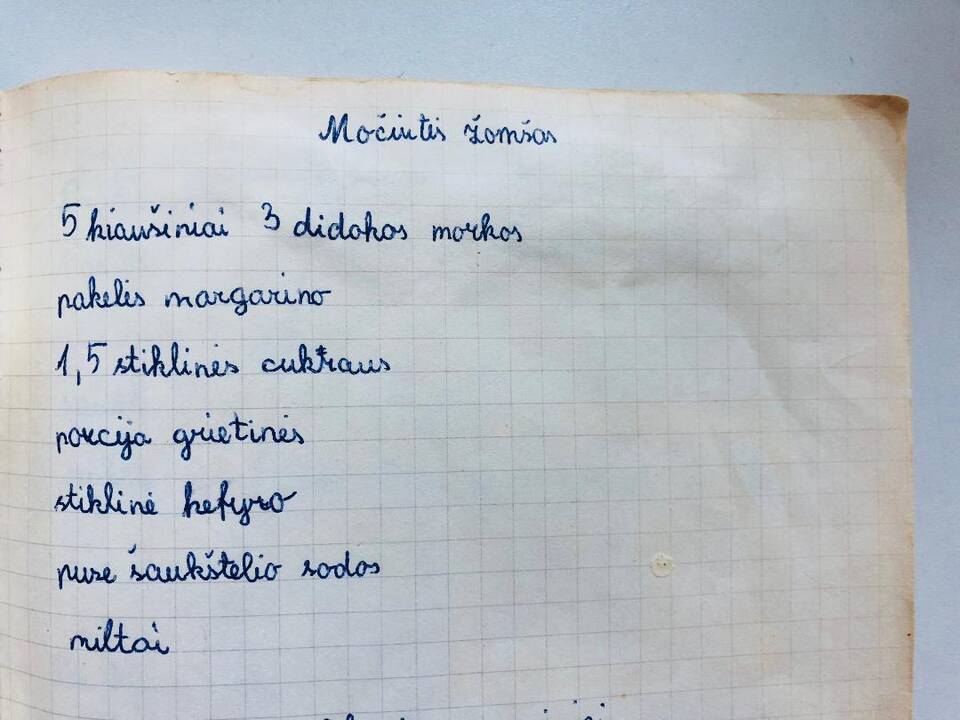 Močiutės žomšas
5 kiaušiniai 3 didokos morkos
pakelės margarino
1,5 stiklinės cukraus
porcija grietinės
stiklinė kefyro
puse šaukštelio sodos
miltai